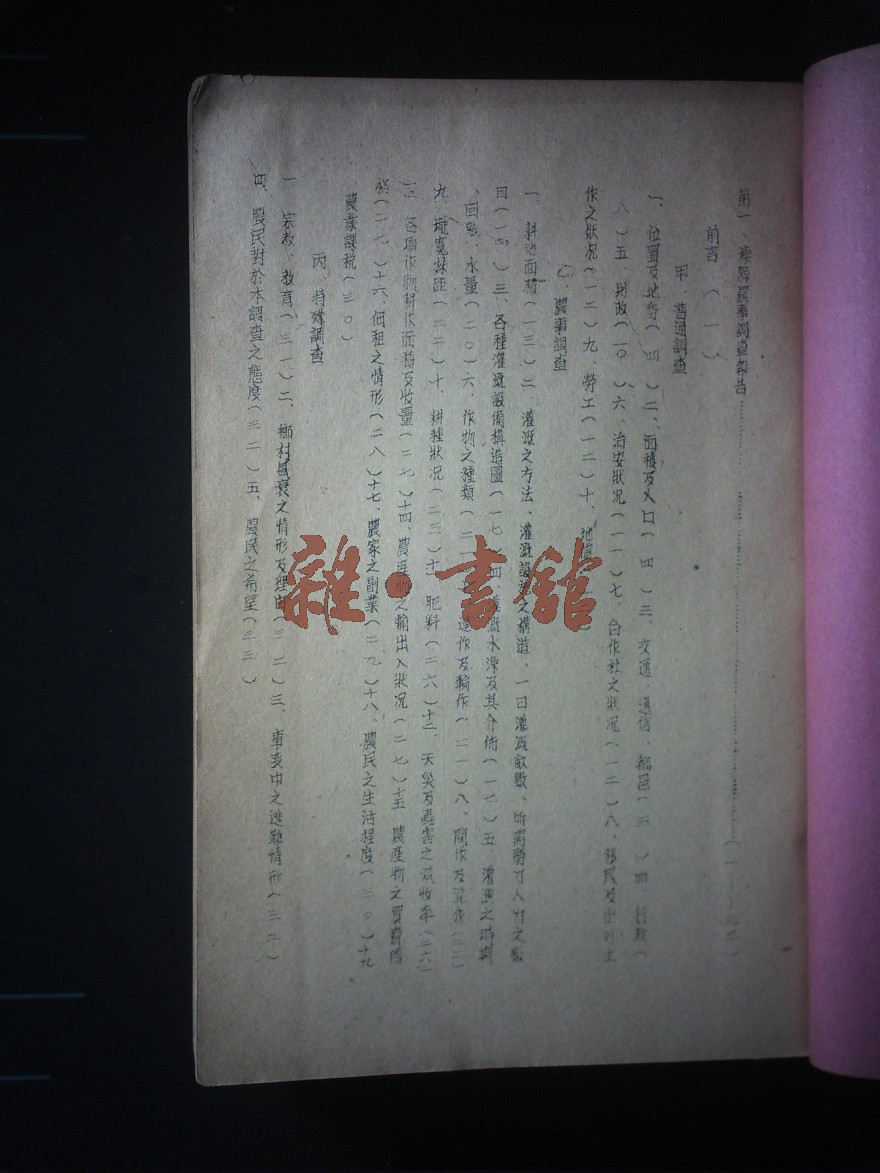 第一、灤縣農事調查報告……………………(一—三三)
前言(一)
甲、普通調查
一、位置及地勢(四)二、面積及人口(四)三、交通、通信、都邑(五)四、行政(
八)五、財政(一〇)六、治安狀況(一一)七、合作社之狀況(一二)八、移民及出外工
作之狀況(一二)九、勞工(一二)十、地價
乙、農事調查
一、耕地面積(一三)二、灌溉之方法、灌溉設備之構造、一日灌溉畝數、所需勞力人力之數
目(一四)三、各種灌溉設備構造圖(一七)四、灌溉水源及其分佈(一七)五、灌溉之時期
、回數、水量(二〇)六、作物之種類(二一)連作及輪作(二一)八、間作及混作(二二)
九、壠寬株距(二二)十、耕種狀況(二三)十一、肥料(二六)十二、天災及蟲害之減收率(二六)
十三、各項作物耕作面積及收量(二七)十四、農產物之輸出入狀況(二七)十五、農產物之買賣價
格(二七)十六、佃租之情形(二八)十七、農家之副業(二九)十八、農民之生活程度(三〇)十九
農業課稅(三〇)
丙、特殊調查
一、宗教、教育(三一)二、鄉村盛衰之情形及理由(三二)三、事變中之逃難情形(三二)
四、農民對於本調查之態度(三二)五、農民之希望(三三)
雜·書館